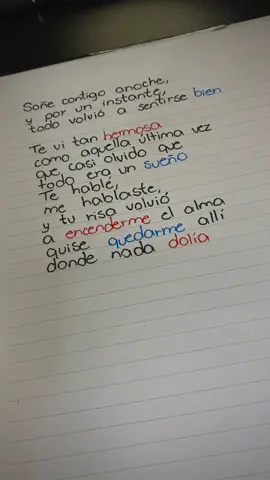 Soñe contigo anoche,
y por un instante,
todo volvió a sentirse bien
Te vi tan hermosa
como aquella última vez
que, casi olvido que
todo era un sueño
Te hablé,
me hablaste,
y tu risa volvió
a encenderme el alma
quise quedarme allí
donde nada dolía